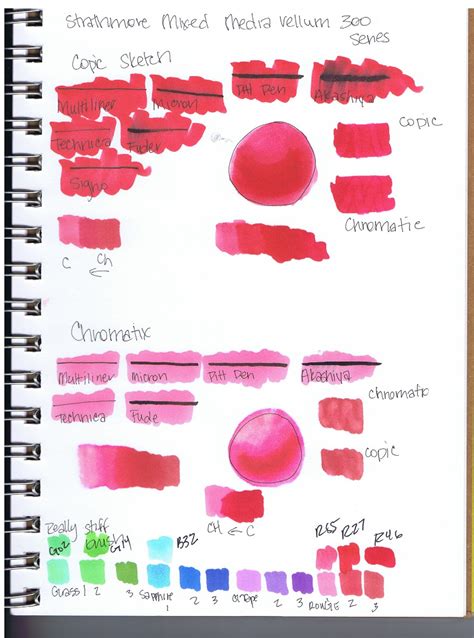 Strathmore Mixed Media Vellum 300
Series
Copic Sketch
Multiliner Micron Pitt Pen Akashiya
Technica Fude
Signo
Copic
Chromatic
C ← Ch
Chromatix
Multiliner micron Pitt Pen Akashiya
Technica Fude
chromatic
copic
CH ← C
Really stiff
brush
G02 G14 B32 R35 R27 R46
Grass 1 2 3 Sapphire 1 2 3 Grape 2 3 Rouge 2 3